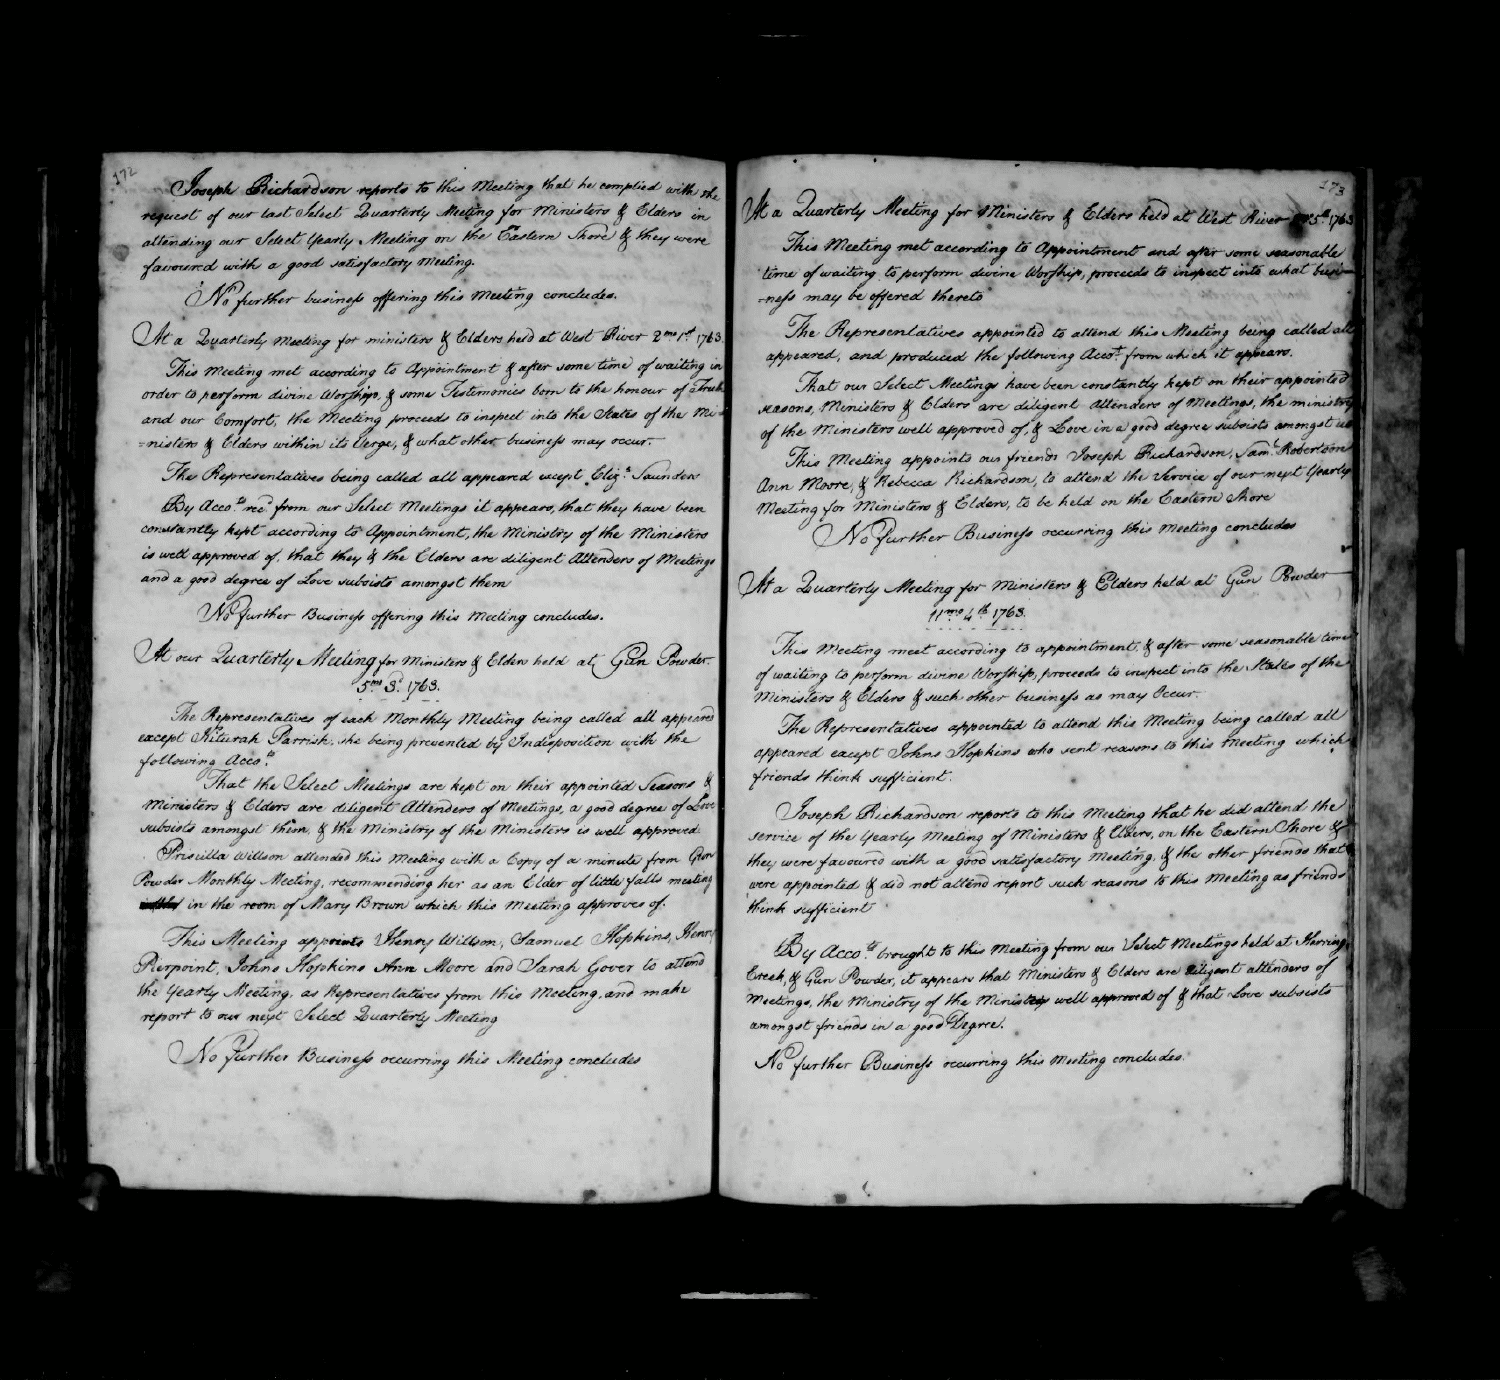 172
Joseph Richardson reports to this Meeting that he complied with the
request of our last Select Quarterly Meeting for Ministers & Elders in
attending our Select Yearly Meeting on the Eastern Shore & they were
favoured with a good satisfactory Meeting.
No further business offering this Meeting concludes.
At a Quarterly Meeting for ministers & Elders held at West River 2mo 1st 1763.
This Meeting met according to Appointment & after some time of waiting in
order to perform divine Worship, & some Testimonies born to the honour of Truth
and our Comfort, the Meeting proceeds to inspect into the States of the Mi-
=nisters & Elders within its Verge, & what other business may occur.
The Representatives being called all appeared except Eliza. Saunders
By Accots. recd from our Select Meetings it appears, that they have been
constantly kept according to Appointment, the Ministry of the Ministers
is well approved of, that they & the Elders are diligent Attenders of Meetings
and a good degree of Love subsists amongst them
No further Business offering this Meeting concludes.
At our Quarterly Meeting for Ministers & Elders held at Gun Powder
5mo 3d. 1763.
The Representatives of each Monthly Meeting being called all appeared
except Kiturah Parrish, she being prevented by Indisposition with the
following Accots.
That the Select Meetings are kept on their appointed Seasons &
Ministers & Elders are diligent Attenders of Meetings, a good degree of Love
subsists amongst them, & the Ministry of the Ministers is well approved.
Priscilla Willson attended this Meeting with a Copy of a minute from Gun
Powder Monthly Meeting, recommending her as an Elder of little falls meeting
in the room of Mary Brown which this Meeting approves of.
This Meeting appoints Henry Willson, Samuel Hopkins, Henry
Pierpoint, Johns Hopkins Ann Moore and Sarah Gover to attend
the Yearly Meeting, as Representatives from this Meeting, and make
report to our next Select Quarterly Meeting
No further Business occurring this Meeting concludes
173
At a Quarterly Meeting for Ministers & Elders held at West River 5th 1763
This Meeting met according to Appointment and after some seasonable
time of waiting to perform divine Worship, proceeds to inspect into what busi-
=ness may be offered thereto
The Representatives appointed to attend this Meeting being called all
appeared, and produced the following Accot. from which it appears.
That our Select Meetings have been constantly kept on their appointed
seasons, Ministers & Elders are diligent Attenders of Meetings, the ministry
of the Ministers well approved of, & Love in a good degree subsists amongst us
This Meeting appoints our friends Joseph Richardson, Saml. Robertson
Ann Moore, & Rebecca Richardson, to attend the Service of our next Yearly
Meeting for Ministers & Elders, to be held on the Eastern Shore
No Further Business occurring this Meeting concludes
At a Quarterly Meeting for Ministers & Elders held at Gun Powder
11mo 4th 1763.
This Meeting meet according to appointment, & after some seasonable time
of waiting to perform divine Worship, proceeds to inspect into the States of the
Ministers & Elders & such other business as may Occur.
The Representatives appointed to attend this Meeting being called all
appeared except Johns Hopkins who sent reasons to this Meeting which
friends think sufficient.
Joseph Richardson reports to this Meeting that he did attend the
service of the Yearly Meeting of Ministers & Elders, on the Eastern Shore &
they were favoured with a good satisfactory Meeting, & the other friends that
were appointed & did not attend report such reasons to this Meeting as friends
think sufficient
By Accots. brought to this Meeting from our Select Meetings held at Herring
Creek, & Gun Powder, it appears that Ministers & Elders are diligent attenders of
Meetings, the Ministry of the Ministers well approved of & that Love subsists
amongst friends in a good Degree.
No further Business occurring this Meeting concludes.